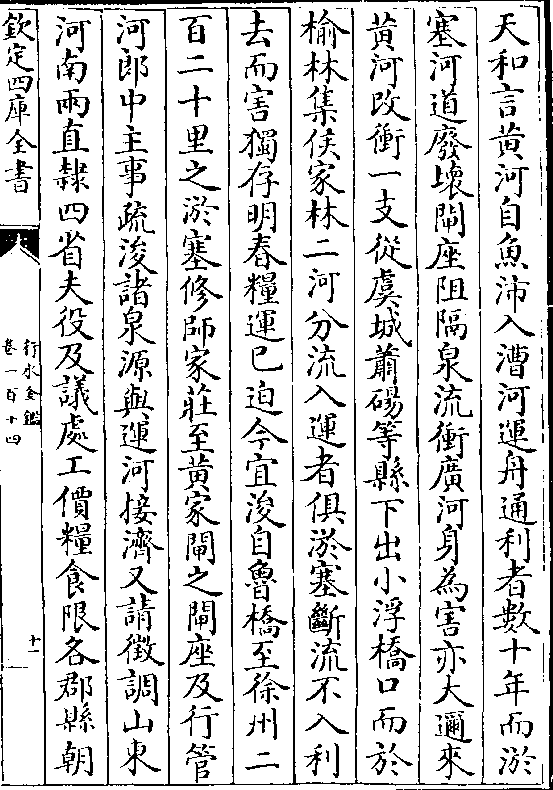 天和言黄河自魚沛入漕河運舟通利者數十年而淤
塞河道廢壞閘座阻隔泉流衝廣河身為害亦大邇來
黄河改衝一支從虞城蕭碭等縣下出小浮橋口而於
榆林集侯家林二河分流入運者俱淤塞斷流不入利
去而害獨存明春糧運已迫今宜浚自魯橋至徐州二
百二十里之淤塞修師家莊至黄家閘之閘座及行管
河郎中主事疏浚諸泉源與運河接濟又請徴調山東
河南兩直隸四省夫役及議處工價糧食限各郡縣朝
欽定四庫全書
行水金鑑
卷一百十四
十一